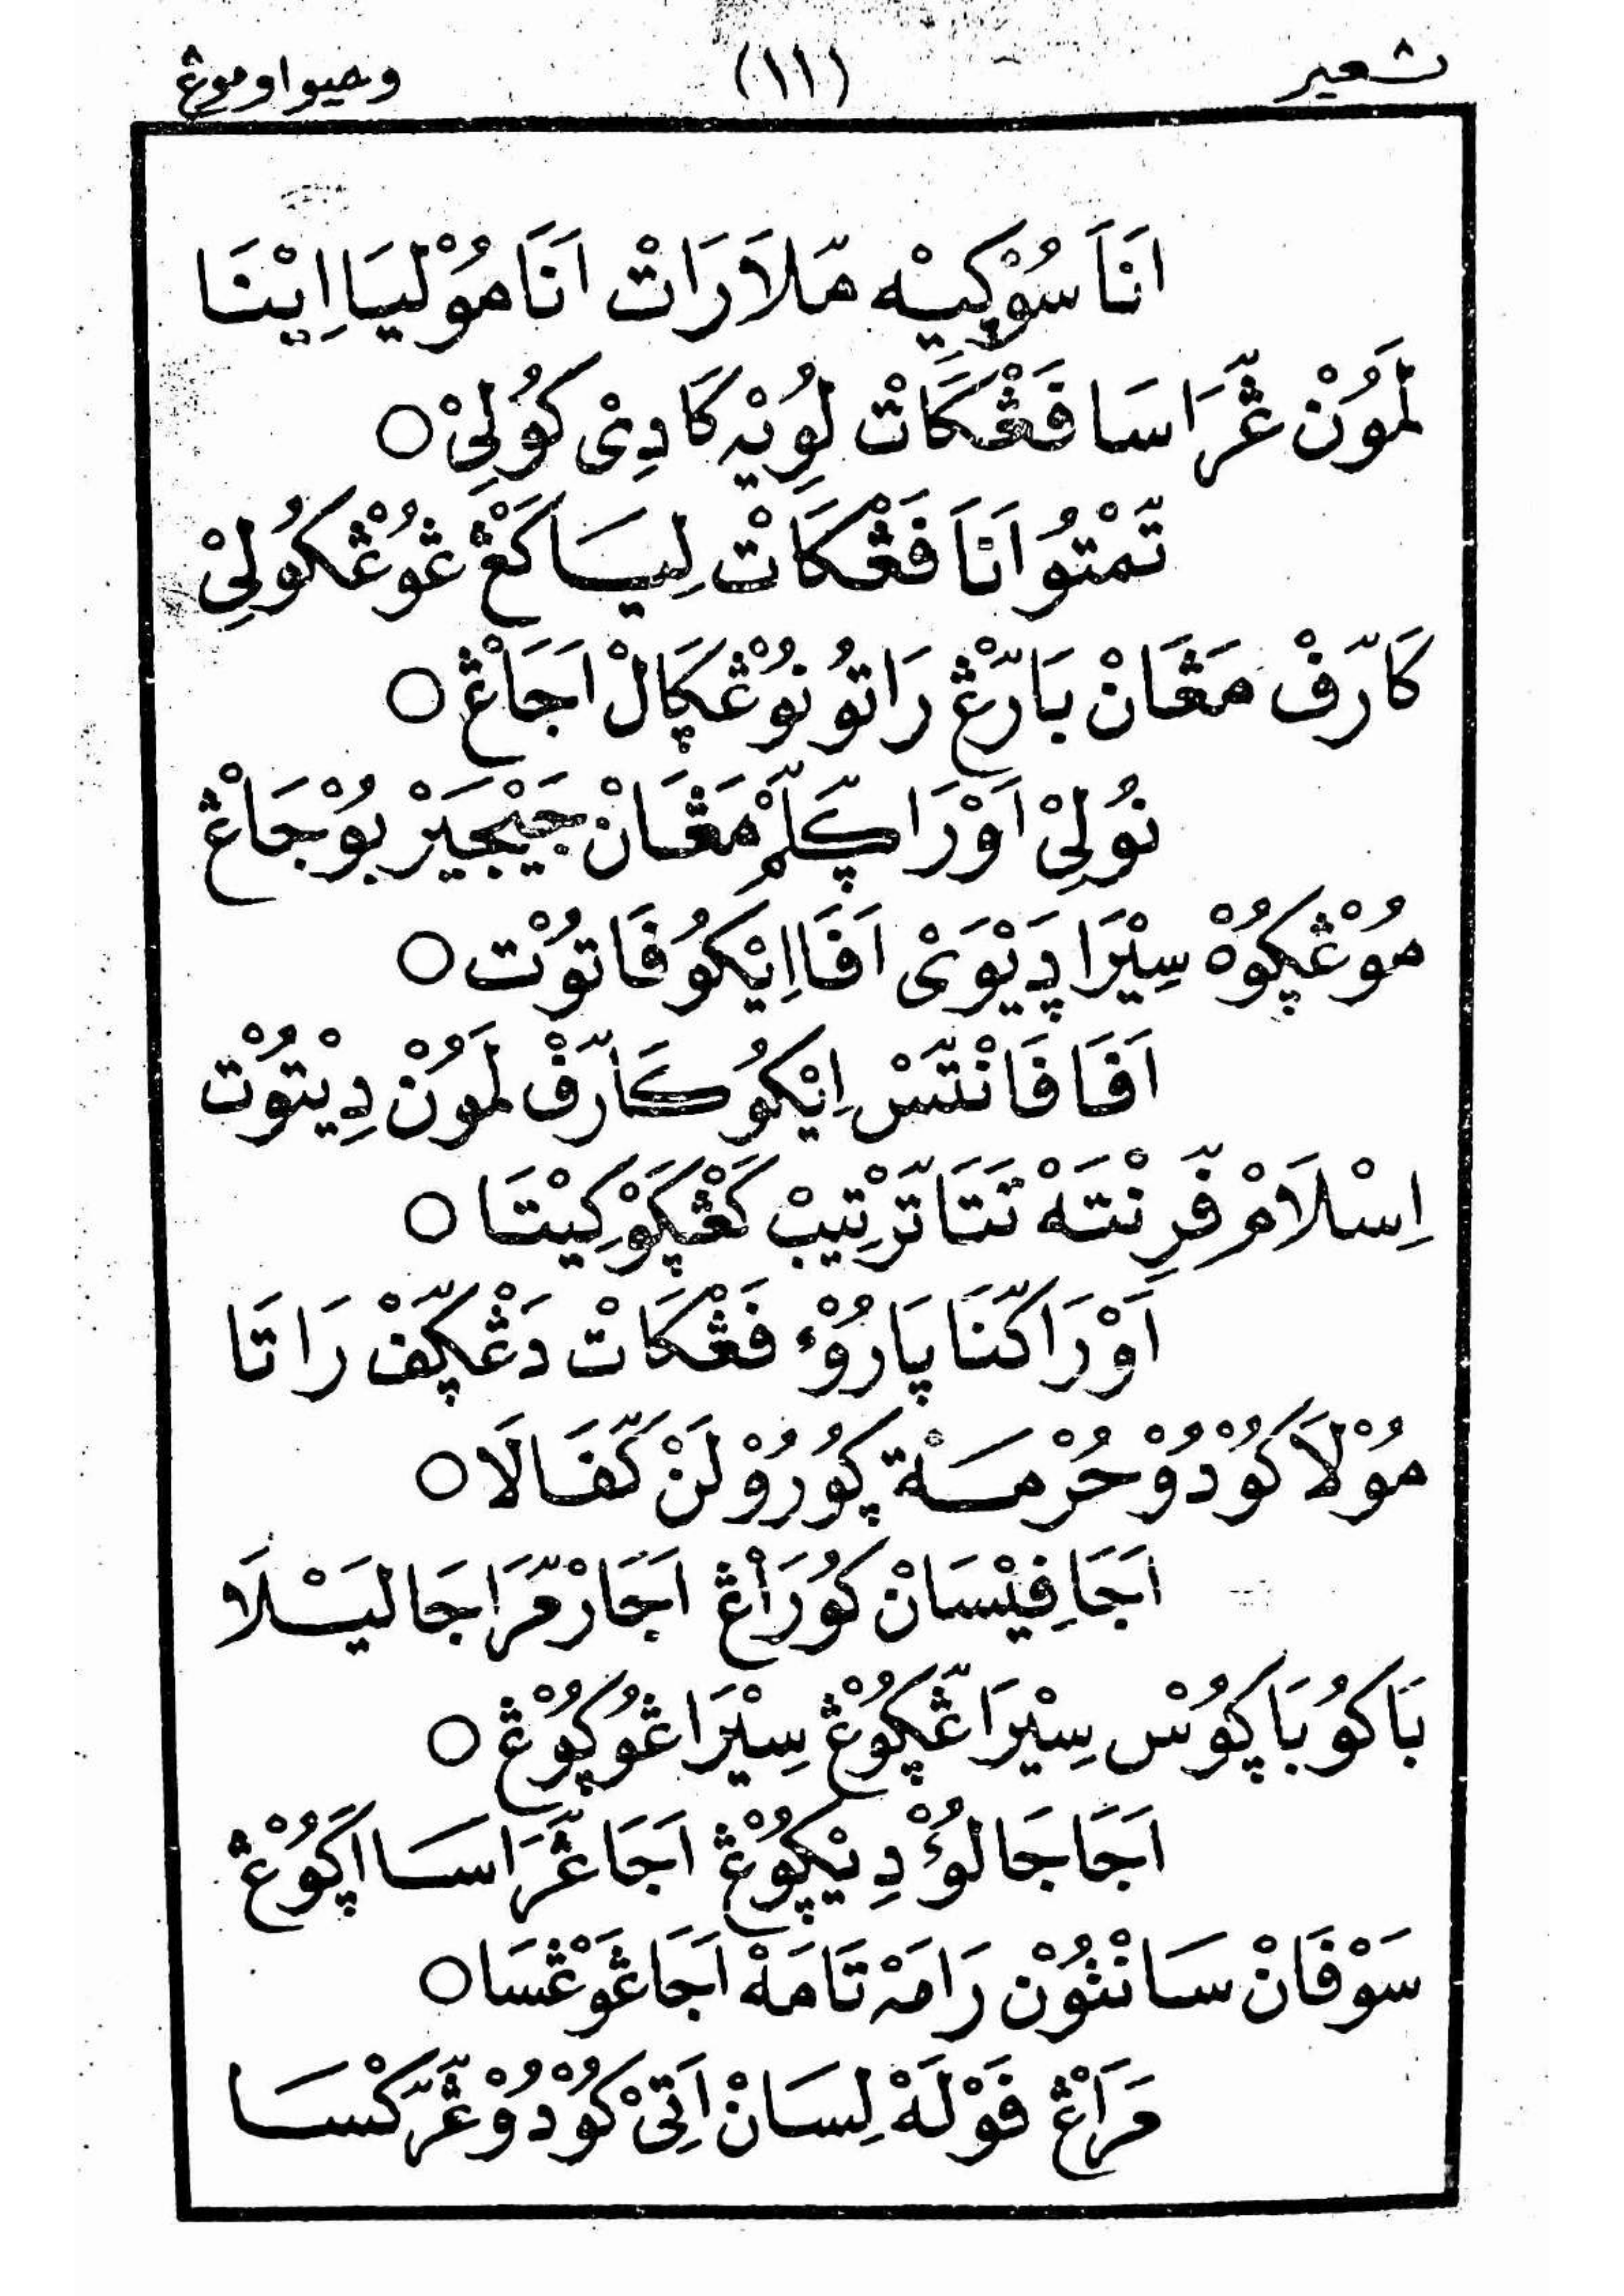 شعير (١١) وصيوا وموڠ
اَنَاَ سُوْڮِيْه مّلاَرَاتْ اَنَا مُوْلْيَا اِيْنَا
لَمَوُنْ ڠّرَاسَا فَڠْكَاتْ لُوِيْه كَادِىْ كُوْلِىْ ○
تّمْتُوْ اَنَا فَڠْكَاتْ لِيَسَا كَڠْ ڠُوْڠْكُوْلِىْ
كَارّفْ مَڠَانْ بَارّڠْ رَاتُوْ نُوْڠْڮَالْ اَجَاڠْ ○
نُوْلِىْ اَوْرَا ڮّلّمْ مَڠَانْ جَيْجَيْرْ بُوْجَاڠْ
مُوْڠْڮُوْهْ سِيْرَا ڎَيْوَىْ اَفَا اِيْكُوْ فَاتُوْتْ ○
اَفَا فَانْتّسْ اِيْكُوْ كَارّفْ لَمَوُنْ دِيْتُوْتْ
اِسْلاَمْ فّرِنْتَهْ تَتَا تّرْتِيْبْ كَڠْڮَوْ كِيْتَا ○
اَوْرَا كّنَا ڽَارُوْءْ فَڠْكَاتْ دَڠْڮّفْ رَاتَا
مُوْلاَ كُوْدُوْ حُرْمَتْ ڮُوْرُوْ لَنْ كّفَالَا ○
اَجَا فِيْسَانْ كُوْرَاڠْ اَجَارْ مّرَاجَا لَيْسْلَا
بَاكُوْ بَاڮُوْسْ سِيْرَا ڠّڮُوْڠْ سِيْرَا ڠُوْڮُوْڠْ ○
اَجَا جَالُوْءْ دِيْڮُوْڠْ اَجَا ڠّرَاسَا اَڮُوْڠْ
سَوْفَانْ سَانْتُوْنْ رَامَهْ تَامَهْ اَجَا ڠَوْڠْسَا ○
مَرَاڠْ فَوْلَهْ لِسَانْ اَتِىْ كُوْدُوْ ڠّرّكْسَا